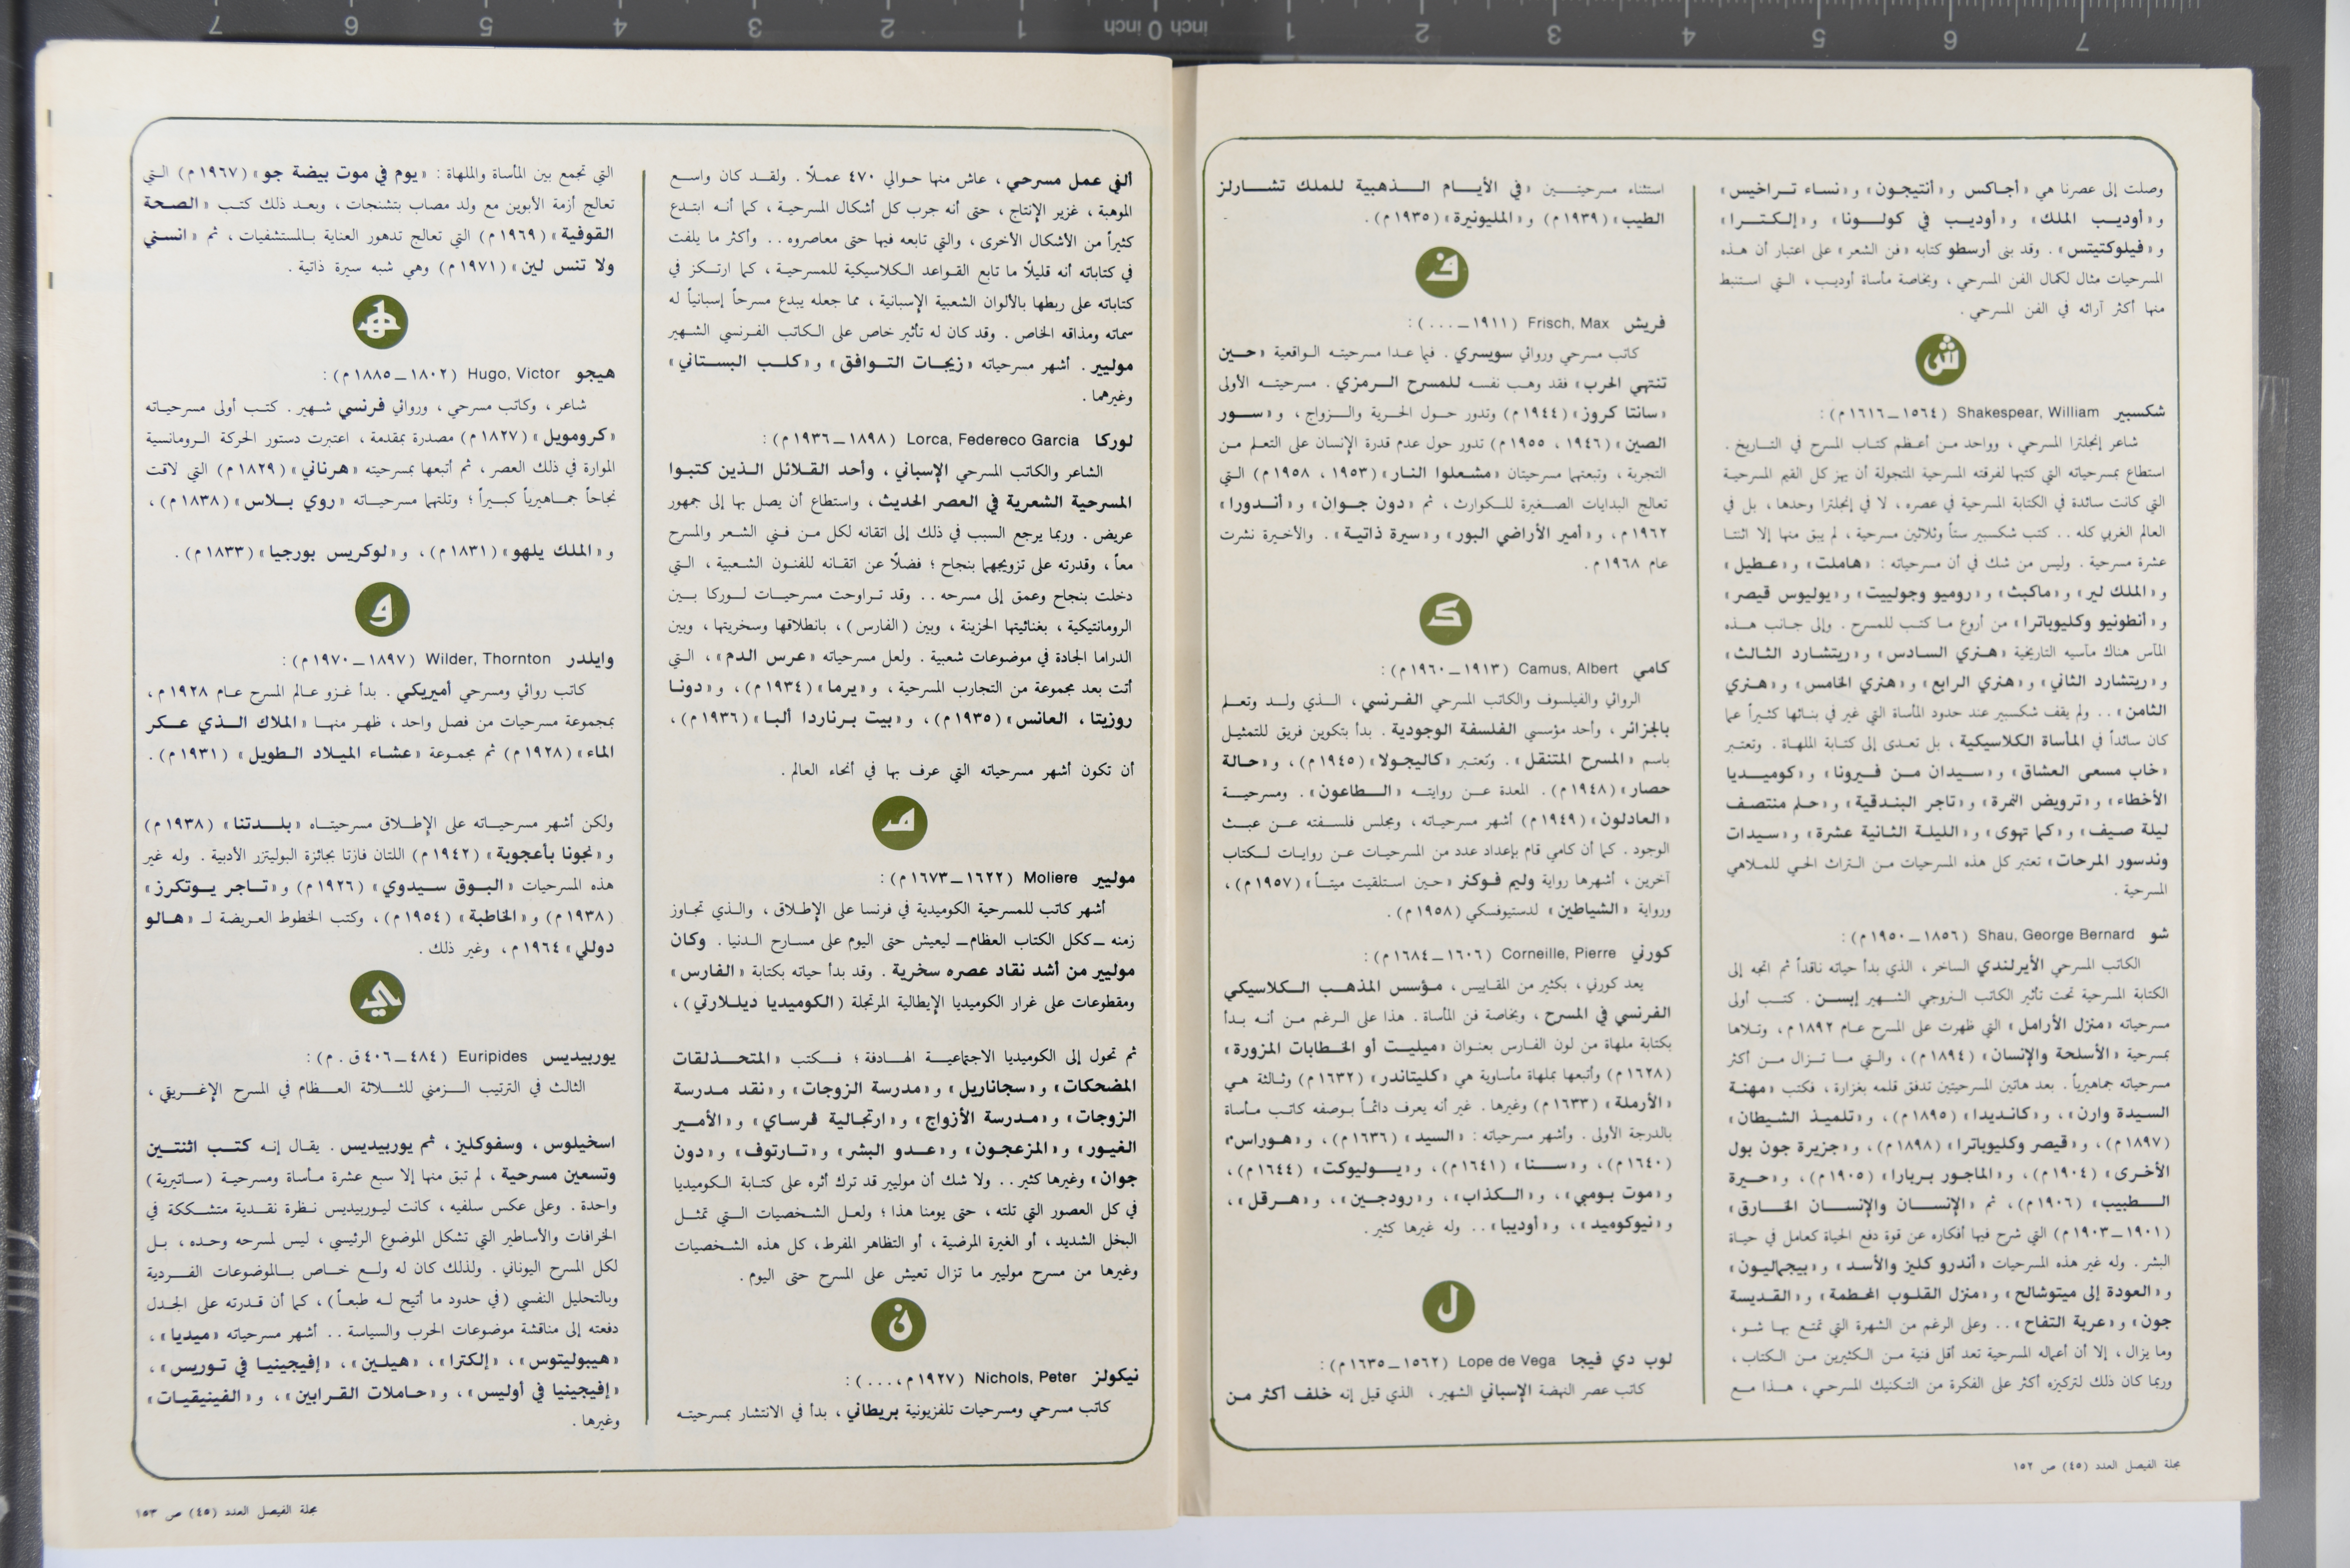 وصلت إلى عصرنا هي «أجاكس و«أنتيجون» و«نساء تراخيس»
و«أوديب الملك» و«أوديب في كولونا» و«إلكترا»
و«فيلوكتيتس». وقد بنى أرسطو كتابه «فن الشعر» على اعتبار أن هذه
المسرحيات مثال لكمال الفن المسرحي، وبخاصة مأساة أوديب، التي استنبط
منها أكثر آرائه في الفن المسرحي.
ش
شكسبير Shakespear, William (١٥٦٤ـ١٦١٦م):
شاعر إنجلترا المسرحي، وواحد من أعظم كتاب المسرح في التاريخ.
استطاع بمسرحياته التي كتبها لفرقته المسرحية المتجولة أن يهز كل القيم المسرحية
التي كانت سائدة في الكتابة المسرحية في عصره، لا في إنجلترا وحدها، بل في
العالم الغربي كله.. كتب شكسبير ستاً وثلاثين مسرحية، لم يبق منها إلا اثنتا
عشرة مسرحية. وليس من شك في أن مسرحياته: «هاملت» و«عطيل»
و«الملك لير» و«ماكبث» و«روميو وجولييت» و«يوليوس قيصر»
و«أنطونيو وكليوباترا» من أروع ما كتب للمسرح. وإلى جانب هذه
المآس هناك مآسيه التاريخية «هنري السادس» و«ريتشارد الثالث»
و«ريتشارد الثاني» و«هنري الرابع» و«هنري الخامس» و«هنري
الثامن».. ولم يقف شكسبير عند حدود المأساة التي غير في بنائها كثيراً عما
كان سائداً في المأساة الكلاسيكية، بل تعدى إلى كتابة الملهاة. وتعتبر
«خاب مسعى العشاق» و«سيدان من فيرونا» و«كوميديا
الأخطاء» و«ترويض النمرة» و«تاجر البندقية» و«حلم منتصف
ليلة صيف» و«كما تهوى» و«الليلة الثانية عشرة» و«سيدات
وندسور المرحات» تعتبر كل هذه المسرحيات من التراث الحي للملاهي
المسرحية.
شو Shau, George Bernard (١٨٥٦ـ١٩٥٠م):
الكاتب المسرحي الأيرلندي الساخر، الذي بدأ حياته ناقداً ثم اتجه إلى
الكتابة المسرحية تحت تأثير الكاتب النروجي الشهير إبسن. كتب أولى
مسرحياته «منزل الأرامل» التي ظهرت على المسرح عام ١٨٩٢م، وتلاها
بمسرحية «الأسلحة والإنسان» (١٨٩٤م)، والتي ما تزال من أكثر
مسرحياته جماهيرياً. بعد هاتين المسرحيتين تدفق قلمه بغزارة، فكتب «مهنة
السيدة وارن»، و«كانديدا» (١٨٩٥م)، و«تلميذ الشيطان»
(١٨٩٧م)، و«قيصر وكليوباترا» (١٨٩٨م)، و«جزيرة جون بول
الأخرى» (١٩٠٤م)، و«الماجور بربارا» (١٩٠٥م)، و«حيرة
الطبيب» (١٩٠٦م)، ثم «الإنسان والإنسان الخارق»
(١٩٠١ـ١٩٠٣م) التي شرح فيها أفكاره عن قوة دفع الحياة كعامل في حياة
البشر. وله غير هذه المسرحيات «أندرو كليز والأسد» و«بيجماليون»
و«العودة إلى ميتوشالح» و«منزل القلوب المحطمة» و«القديسة
جون» و«عربة التفاح».. وعلى الرغم من الشهرة التي تمتع بها شو،
وما يزال، إلا أن أعماله المسرحية تعد أقل فنية من الكثيرين من الكتاب،
وربما كان ذلك لتركيزه أكثر على الفكرة من التكنيك المسرحي، هذا مع
استثناء مسرحيتين «في الأيام الذهبية للملك تشارلز
الطيب» (١٩٣٩م) و«المليونيرة» (١٩٣٥م).
ف
فريش Frisch, Max (١٩١١ـ...):
كاتب مسرحي وروائي سويسري. فيما عدا مسرحيته الواقعية «حين
تنتهي الحرب» فقد وهب نفسه للمسرح الرمزي. مسرحيته الأولى
«سانتا كروز» (١٩٤٤م) وتدور حول الحرية والزواج، و«سور
الصين» (١٩٤٦، ١٩٥٥م) تدور حول عدم قدرة الإنسان على التعلم من
التجربة، وتبعتهما مسرحيتان «مشعلوا النار» (١٩٥٣، ١٩٥٨م) التي
تعالج البدايات الصغيرة للكوارث، ثم «دون جوان» و«أندورا»
١٩٦٢م، و«أمير الأراضي البور» و«سيرة ذاتية». والأخيرة نشرت
عام ١٩٦٨م.
ك
كامي Camus, Albert (١٩١٣ـ١٩٦٠م):
الروائي والفيلسوف والكاتب المسرحي الفرنسي، الذي ولد وتعلم
بالجزائر، وأحد مؤسسي الفلسفة الوجودية. بدأ بتكوين فريق للتمثيل
باسم «المسرح المتنقل». وتعتبر «كاليجولا» (١٩٤٥م)، و«حالة
حصار» (١٩٤٨م). المعدة عن روايته «الطاعون». ومسرحية
«العادلون» (١٩٤٩م) أشهر مسرحياته، ومجلس فلسفته عن عبث
الوجود. كما أن كامي قام بإعداد عدد من المسرحيات عن روايات لكتاب
آخرين، أشهرها رواية وليم فوكنر «حين استلقيت ميتاً» (١٩٥٧م)،
ورواية «الشياطين» لدستيوفسكي (١٩٥٨م).
كورني Corneille, Pierre (١٦٠٦ـ١٦٨٤م):
يعد كورني، بكثير من المقاييس، مؤسس المذهب الكلاسيكي
الفرنسي في المسرح، وبخاصة فن المأساة. هذا على الرغم من أنه بدأ
بكتابة ملهاة من لون الفارس بعنوان «ميليت أو الخطابات المزورة»
(١٦٢٨م) وأتبعها بملهاة مأساوية هي «كليتاندر» (١٦٣٢م) وثالثة هي
«الأرملة» (١٦٣٣م) وغيرها. غير أنه يعرف دائماً بوصفه كاتب مأساة
بالدرجة الأولى. وأشهر مسرحياته: «السيد» (١٦٣٦م)، و«هوراس»
(١٦٤٠م)، و«سنا» (١٦٤١م)، و«بوليوكت» (١٦٤٤م)،
و«موت بومبي»، و«الكذاب»، و«رودجين»، و«هرقل»،
و«نيوكوميد»، و«أوديبا».. وله غيرها كثير.
ل
لوب دي فيجا Lope de Vega (١٥٦٢ـ١٦٣٥م):
كاتب عصر النهضة الإسباني الشهير، الذي قيل إنه خلف أكثر من
مجلة الفيصل العدد (٤٥) ص ١٥٢
ألفي عمل مسرحي، عاش منها حوالي ٤٧٠ عملاً. ولقد كان واسع
الموهبة، غزير الإنتاج، حتى أنه جرب كل أشكال المسرحية، كما أنه ابتدع
كثيراً من الأشكال الأخرى، والتي تابعه فيها حتى معاصروه.. وأكثر ما يلفت
في كتاباته أنه قليلاً ما تابع القواعد الكلاسيكية للمسرحية، كما ارتكز في
كتاباته على ربطها بالألوان الشعبية الإسبانية، مما جعله يبدع مسرحاً إسبانياً له
سماته ومذاقه الخاص. وقد كان له تأثير خاص على الكاتب الفرنسي الشهير
موليير. أشهر مسرحياته «زيجات التوافق» و«كلب البستاني»
وغيرهما.
لوركا Lorca, Federeco Garcia (١٨٩٨ـ١٩٣٦م):
الشاعر والكاتب المسرحي الإسباني، وأحد القلائل الذين كتبوا
المسرحية الشعرية في العصر الحديث، واستطاع أن يصل بها إلى جمهور
عريض. وربما يرجع السبب في ذلك إلى اتقانه لكل من فني الشعر والمسرح
معاً، وقدرته على تزويجهما بنجاح؛ فضلاً عن اتقانه للفنون الشعبية، التي
دخلت بنجاح وعمق إلى مسرحه.. وقد تراوحت مسرحيات لوركا بين
الرومانتيكية، بغنائيتها الحزينة، وبين (الفارس)، بانطلاقها وسخريتها، وبين
الدراما الجادة في موضوعات شعبية. ولعل مسرحياته «عرس الدم»، التي
أتت بعد مجموعة من التجارب المسرحية، و«يرما» (١٩٣٤م)، و«دونا
روزيتا، العانس» (١٩٣٥م)، و«بيت برناردا ألبا» (١٩٣٦م)،
أن تكون أشهر مسرحياته التي عرف بها في أنحاء العالم.
م
موليير Moliere (١٦٢٢ـ١٦٧٣م):
أشهر كاتب للمسرحية الكوميدية في فرنسا على الإطلاق، والذي تجاوز
زمنه ـ ككل الكتاب العظام ـ ليعيش حتى اليوم على مسارح الدنيا. وكان
موليير من أشد نقاد عصره سخرية. وقد بدأ حياته بكتابة «الفارس»
ومقطوعات على غرار الكوميديا الإيطالية المرتجلة (الكوميديا ديللارتي)،
ثم تحول إلى الكوميديا الاجتماعية الهادفة؛ فكتب «المتحذلقات
المضحكات» و«سجاناريل» و«مدرسة الزوجات» و«نقد مدرسة
الزوجات» و«مدرسة الأزواج» و«ارتجالية فرساي» و«الأمير
الغيور» و«المزعجون» و«عدو البشر» و«تارتوف» و«دون
جوان» وغيرها كثير.. ولا شك أن موليير قد ترك أثره على كتابة الكوميديا
في كل العصور التي تلته، حتى يومنا هذا؛ ولعل الشخصيات التي تمثل
البخل الشديد، أو الغيرة المرضية، أو التظاهر المفرط، كل هذه الشخصيات
وغيرها من مسرح موليير ما تزال تعيش على المسرح حتى اليوم.
ن
نيكولز Nichols, Peter (١٩٢٧م،...):
كاتب مسرحي ومسرحيات تلفزيونية بريطاني، بدأ في الانتشار بمسرحيته
التي تجمع بين المأساة والملهاة: «يوم في موت بيضة جو» (١٩٦٧م) التي
تعالج أزمة الأبوين مع ولد مصاب بتشنجات، وبعد ذلك كتب «الصحة
القوفية» (١٩٦٩م) التي تعالج تدهور العناية بالمستشفيات، ثم «انسني
ولا تنس لين» (١٩٧١م) وهي شبه سيرة ذاتية.
هـ
هيجو Hugo, Victor (١٨٠٢ـ١٨٨٥م):
شاعر، وكاتب مسرحي، وروائي فرنسي شهير. كتب أولى مسرحياته
«كرومويل» (١٨٢٧م) مصدرة بمقدمة، اعتبرت دستور الحركة الرومانسية
الموارة في ذلك العصر، ثم أتبعها بمسرحيته «هرناني» (١٨٢٩م) التي لاقت
نجاحاً جماهيرياً كبيراً؛ وتلتهما مسرحياته «روي بلاس» (١٨٣٨م)،
و«الملك يلهو» (١٨٣١م)، و«لوكريس بورجيا» (١٨٣٣م).
و
وايلدر Wilder, Thornton (١٨٩٧ـ١٩٧٠م):
كاتب روائي ومسرحي أميريكي. بدأ غزو عالم المسرح عام ١٩٢٨م،
بمجموعة مسرحيات من فصل واحد، ظهر منها «الملاك الذي عكر
الماء» (١٩٢٨م) ثم مجموعة «عشاء الميلاد الطويل» (١٩٣١م).
ولكن أشهر مسرحياته على الإطلاق مسرحيتاه «بلدتنا» (١٩٣٨م)
و«نجونا بأعجوبة» (١٩٤٢م) اللتان فازتا بجائزة البوليتزر الأدبية. وله غير
هذه المسرحيات «البوق سيدوي» (١٩٢٦م) و«تاجر يوتكرز»
(١٩٣٨م) و«الخاطبة» (١٩٥٤م)، وكتب الخطوط العريضة لـ «هالو
دوللي» ١٩٦٤م، وغير ذلك.
ي
يوربيديس Euripides (٤٨٤ـ٤٠٦ق.م):
الثالث في الترتيب الزمني للثلاثة العظام في المسرح الإغريقي،
اسخيلوس، وسفوكليز، ثم يوربيديس. يقال إنه كتب اثنتين
وتسعين مسرحية، لم تبق منها إلا سبع عشرة مأساة ومسرحية (ساتيرية)
واحدة. وعلى عكس سلفيه، كانت ليوربيديس نظرة نقدية متشككة في
الخرافات والأساطير التي تشكل الموضوع الرئيسي، ليس لمسرحه وحده، بل
لكل المسرح اليوناني. ولذلك كان له ولع خاص بالموضوعات الفردية
وبالتحليل النفسي (في حدود ما أتيح له طبعاً)، كما أن قدرته على الجدل
دفعته إلى مناقشة موضوعات الحرب والسياسة.. أشهر مسرحياته «ميديا»،
«هيبوليتوس»، «إلكترا»، «هيلين»، «إفيجينيا في توريس»،
«إفيجينيا في أوليس»، و«حاملات القرابين»، و«الفينيقيات»
وغيرها.
مجلة الفيصل العدد (٤٥) ص ١٥٣
7 6 5 4 3 2 1 inch 0 inch 1 2 3 4 5 6 7